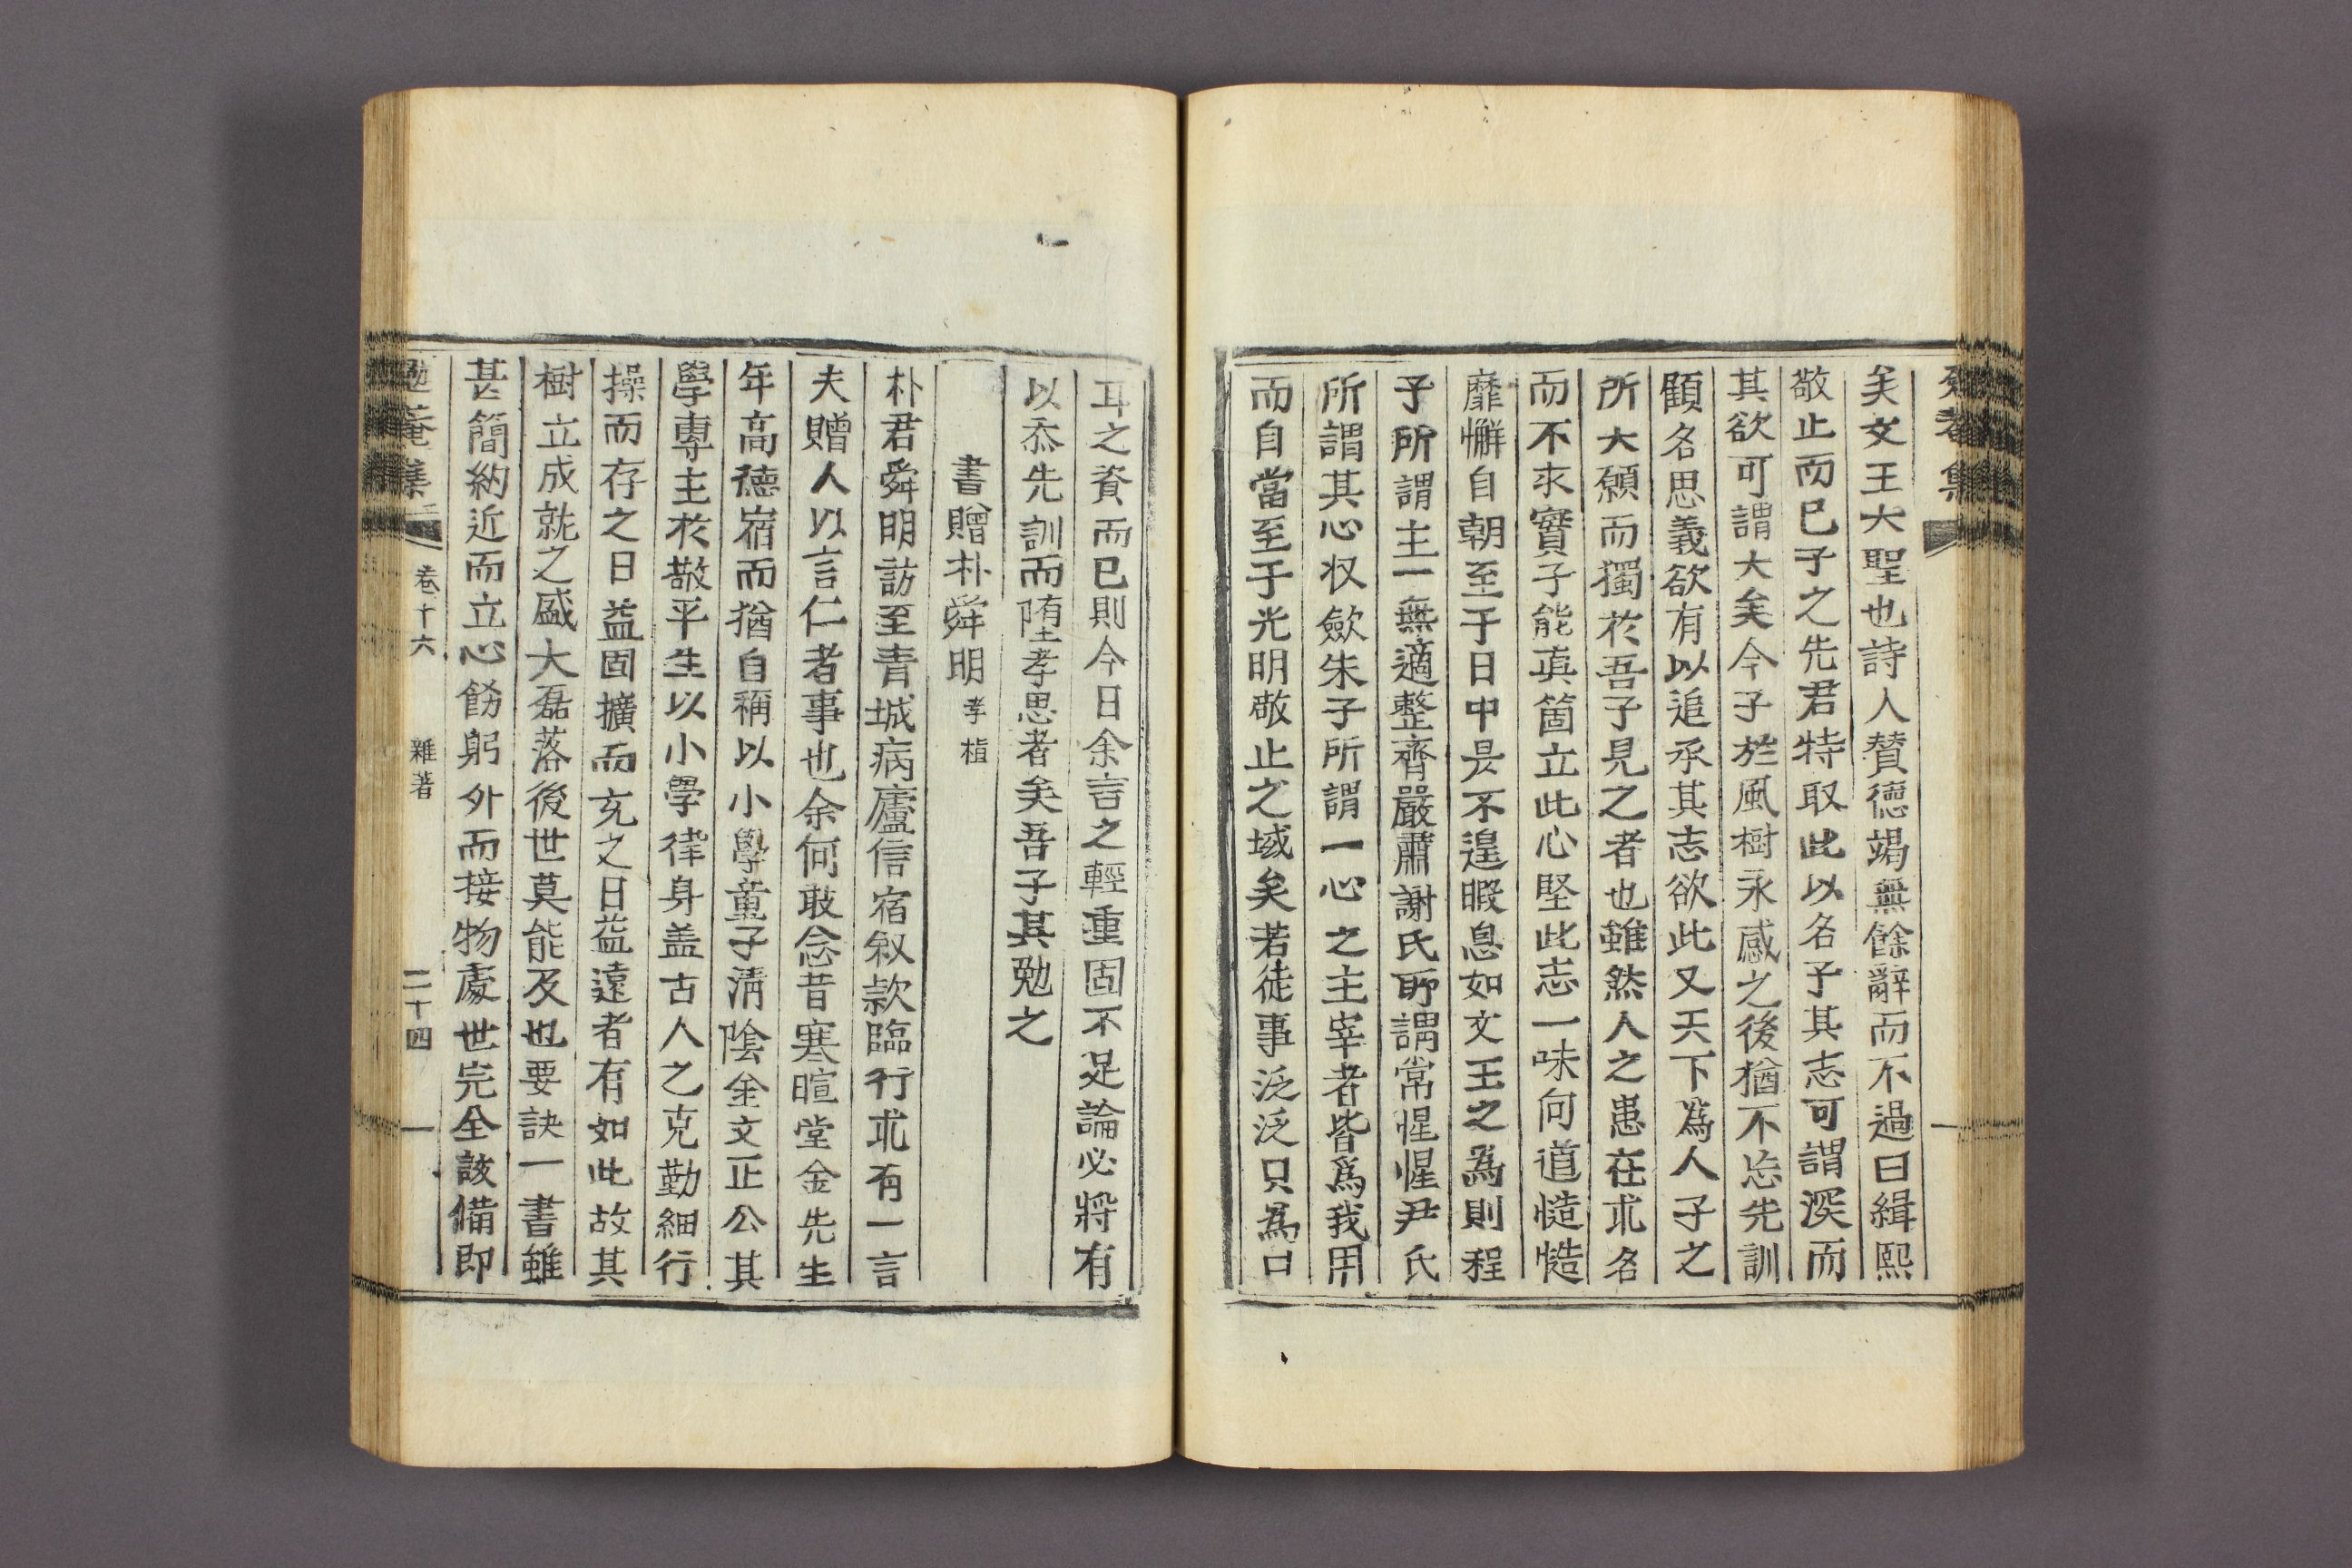 矣文王大聖也詩人贊德竭無餘辭而不過曰緝熙
敬止而已子之先君特取此以名子其志可謂深而
其欲可謂大矣今子於風樹永感之後猶不忘先訓
顧名思義欲有以追承其志欲此又天下爲人子之
所大願而獨於吾子見之者也雖然人之患在求名
而不求實子能眞箇立此心堅此志一味向道慥慥
靡懈自朝至于日中昃不遑暇息如文王之爲則程
子所謂主一無適整齊嚴肅謝氏所謂常惺惺尹氏
所謂其心收斂朱子所謂一心之主宰者皆爲我用
而自當至于光明敬止之域矣若徒事泛泛只爲口
耳之資而已則今日余言之輕重固不足論必將有
以忝先訓而墮孝思者矣吾子其勉之
書贈朴舜明 孝植
朴君舜明訪至靑城病廬信宿叙款臨行求有一言
夫贈人以言仁者事也余何敢念昔寒暄堂金先生
年高德宿而猶自稱以小學童子淸陰金文正公其
學專主於敬平生以小學律身盖古人之克勤細行
操而存之日益固擴而充之日益遠者有如此故其
樹立成就之盛大磊落後世莫能及也要訣一書雖
甚簡約近而立心飭躬外而接物處世完全該備即
勉菴集 卷十六 雜著 二十四